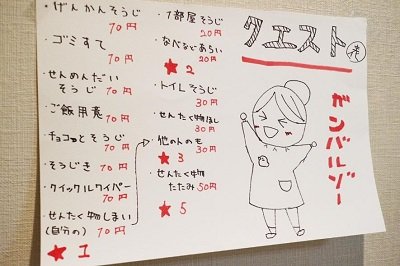 ・げんかんそうじ
10円
・ゴミすて
10円
・せんめんだい
そうじ 10円
・ご飯用意
10円
・チョコっとそうじ
10円
・そうじき 10円
・クイックルワイパー
10円
・せんたく物しまい
(自分の) 10円
★1
・1部屋そうじ
20円
・なべなどあらい
20円
★2
・トイレそうじ
30円
・せんたく物ほし
30円
・他のんのも
★3 30円
・せんたく物
たたみ 50円
★5
クエスト
ガンバルゾー